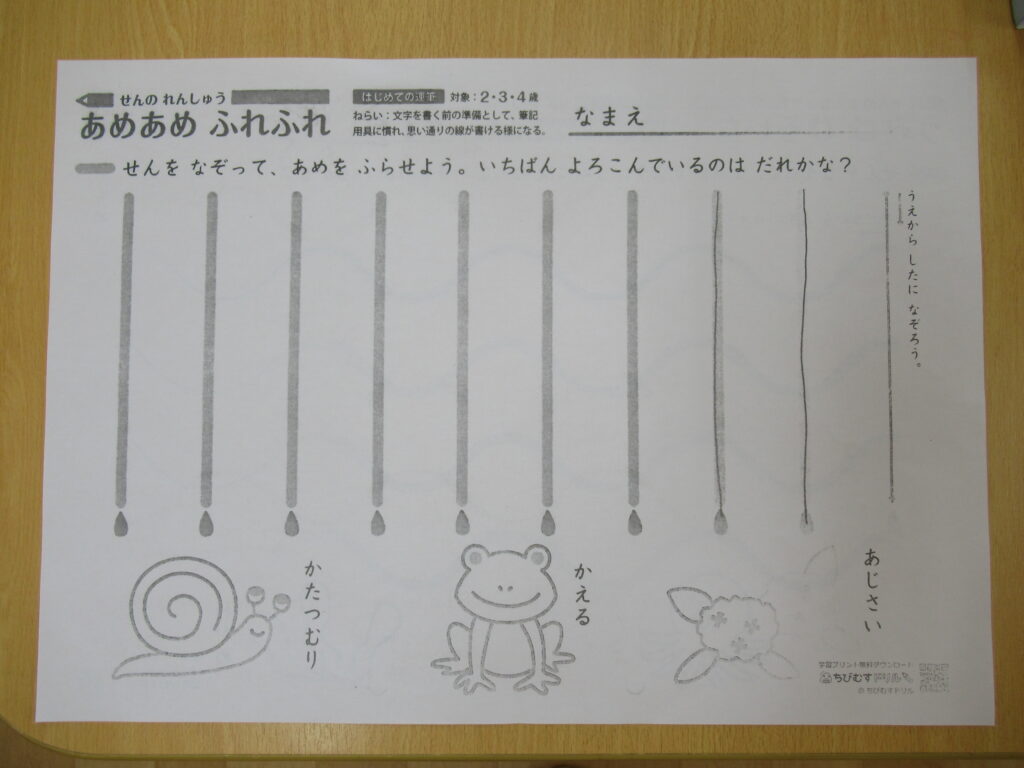 せんの れんしゅう
あめあめ ふれふれ
はじめての運筆 対象：2・3・4歳
ねらい：文字を書く前の準備として、筆記
用具に慣れ、思い通りの線が書ける様になる。
なまえ
せんを なぞって、あめを ふらせよう。いちばん よろこんでいるのは だれかな？
うえから したに なぞろう。
あじさい
かえる
かたつむり
学習プリント無料ダウンロード
ちびむすドリル
© ちびむすドリル